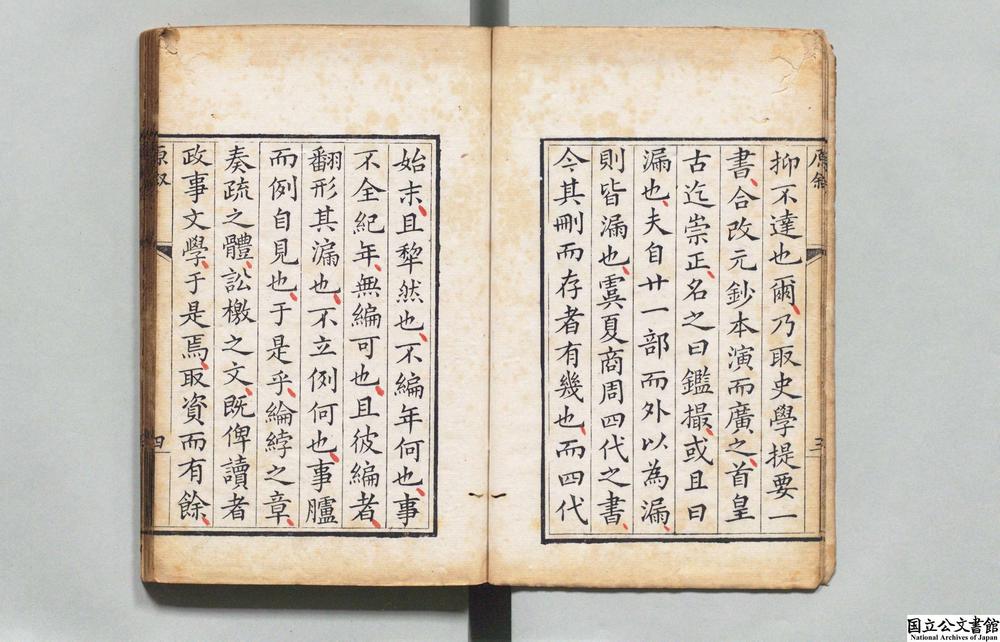 抑不達也爾乃取史學提要一
書合改元鈔本演而廣之首皇
古迄崇正名之曰鑑撮或且曰
漏也夫自廿一部而外以為漏
則皆漏也虞夏商周四代之書
今其刪而存者有幾也而四代
三
始末且犂然也不編年何也事
不全紀年無編可也且彼編者
翻形其漏也不立例何也事臚
而例自見也于是乎綸綍之章
奏疏之體訟檄之文既俾讀者
政事文學于是焉取資而有餘
四
国立公文書館
National Archives of Japan